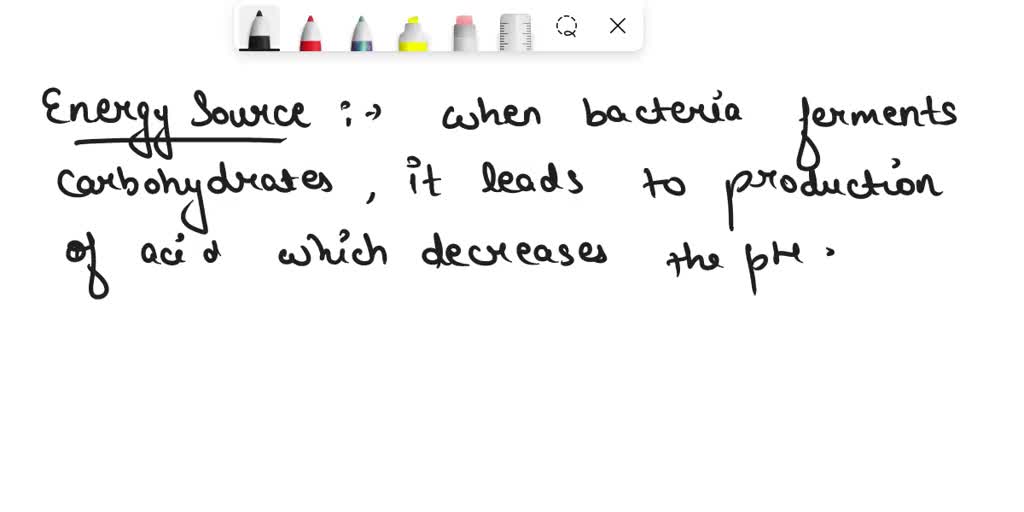 Energy Source :→ when bacteria ferments
carbohydrates, it leads to production
of acid which decreases the pH.